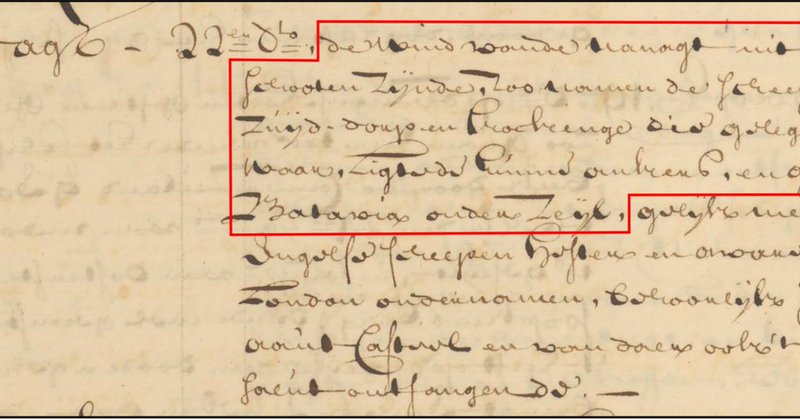 ags - 22en do, de wind vande nanagt uit
schooten zijnde, zoo namen de schee
Zuijd-dorp en Kockenge die geleg
waar, ligtede hunne ankers, en g
Batavia onder Zeijl, gelijk me
Engelse scheepen Hester en
London ondernamen, behoorlijk
aant Casteel en van daer ook 't
saluut ontfangende. —